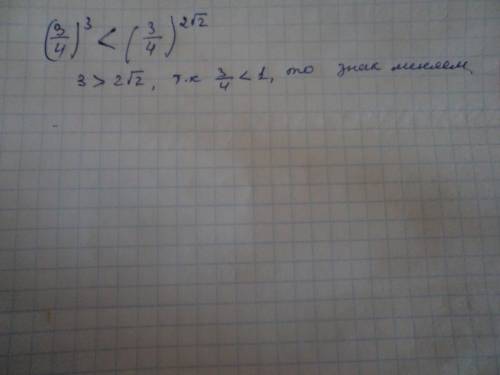 (3/4)^3 < (3/4)^{2√2}
3 > 2√2, т.к 3/4 < 1, то знак меняем